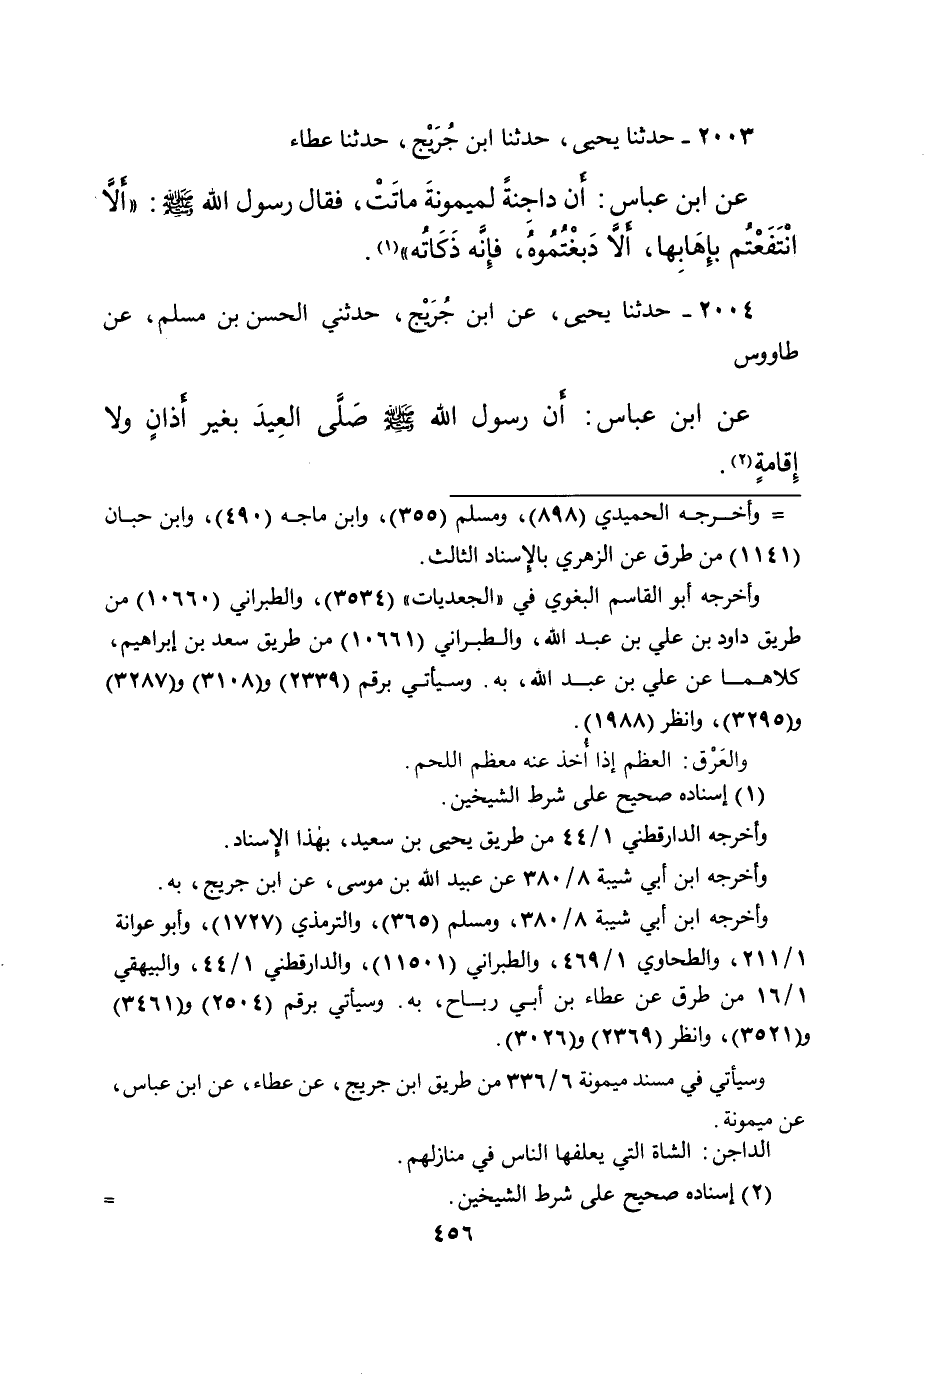 ٢٠٠٣ - حدثنا يحيى، حدثنا ابن جُرَيْج، حدثنا عطاء
عن ابن عباس: أَن داجِنةً لميمونةَ ماتَتْ، فقال رسول الله ﷺ: «أَلَّا
انْتَفَعْتُم بإِهَابِها، أَلَّا دَبغْتُموهُ، فإِنَّه ذَكَاتُه»(١).
٢٠٠٤ - حدثنا يحيى، عن ابن جُرَيْج، حدثني الحسن بن مسلم، عن
طاووس
عن ابن عباس: أَن رسول الله ﷺ صَلَّى العِيدَ بغير أَذانٍ ولا
إِقامةٍ(٢).
= وأخرجه الحميدي (٨٩٨)، ومسلم (٣٥٥)، وابن ماجه (٤٩٠)، وابن حبان
(١١٤١) من طرق عن الزهري بالإسناد الثالث.
وأخرجه أبو القاسم البغوي في «الجعديات» (٣٥٣٤)، والطبراني (١٠٦٦٠) من
طريق داود بن علي بن عبد الله، والطبراني (١٠٦٦١) من طريق سعد بن إبراهيم،
كلاهما عن علي بن عبد الله، به. وسيأتي برقم (٢٣٣٩) و(٣١٠٨) و(٣٢٨٧)
و(٣٢٩٥)، وانظر (١٩٨٨).
والعَرْق: العظم إذا أُخذ عنه معظم اللحم.
(١) إسناده صحيح على شرط الشيخين.
وأخرجه الدارقطني ٤٤/١ من طريق يحيى بن سعيد، بهٰذا الإسناد.
وأخرجه ابن أبي شيبة ٣٨٠/٨ عن عبيد الله بن موسى، عن ابن جريج، به.
وأخرجه ابن أبي شيبة ٣٨٠/٨، ومسلم (٣٦٥)، والترمذي (١٧٢٧)، وأبو عوانة
٢١١/١، والطحاوي ٤٦٩/١، والطبراني (١١٥٠١)، والدارقطني ٤٤/١، والبيهقي
١٦/١ من طرق عن عطاء بن أبي رباح، به. وسيأتي برقم (٢٥٠٤) و(٣٤٦١)
و(٣٥٢١)، وانظر (٢٣٦٩) و(٣٠٢٦).
وسيأتي في مسند ميمونة ٣٣٦/٦ من طريق ابن جريج، عن عطاء، عن ابن عباس،
عن ميمونة.
الداجن: الشاة التي يعلفها الناس في منازلهم.
(٢) إسناده صحيح على شرط الشيخين. =
٤٥٦